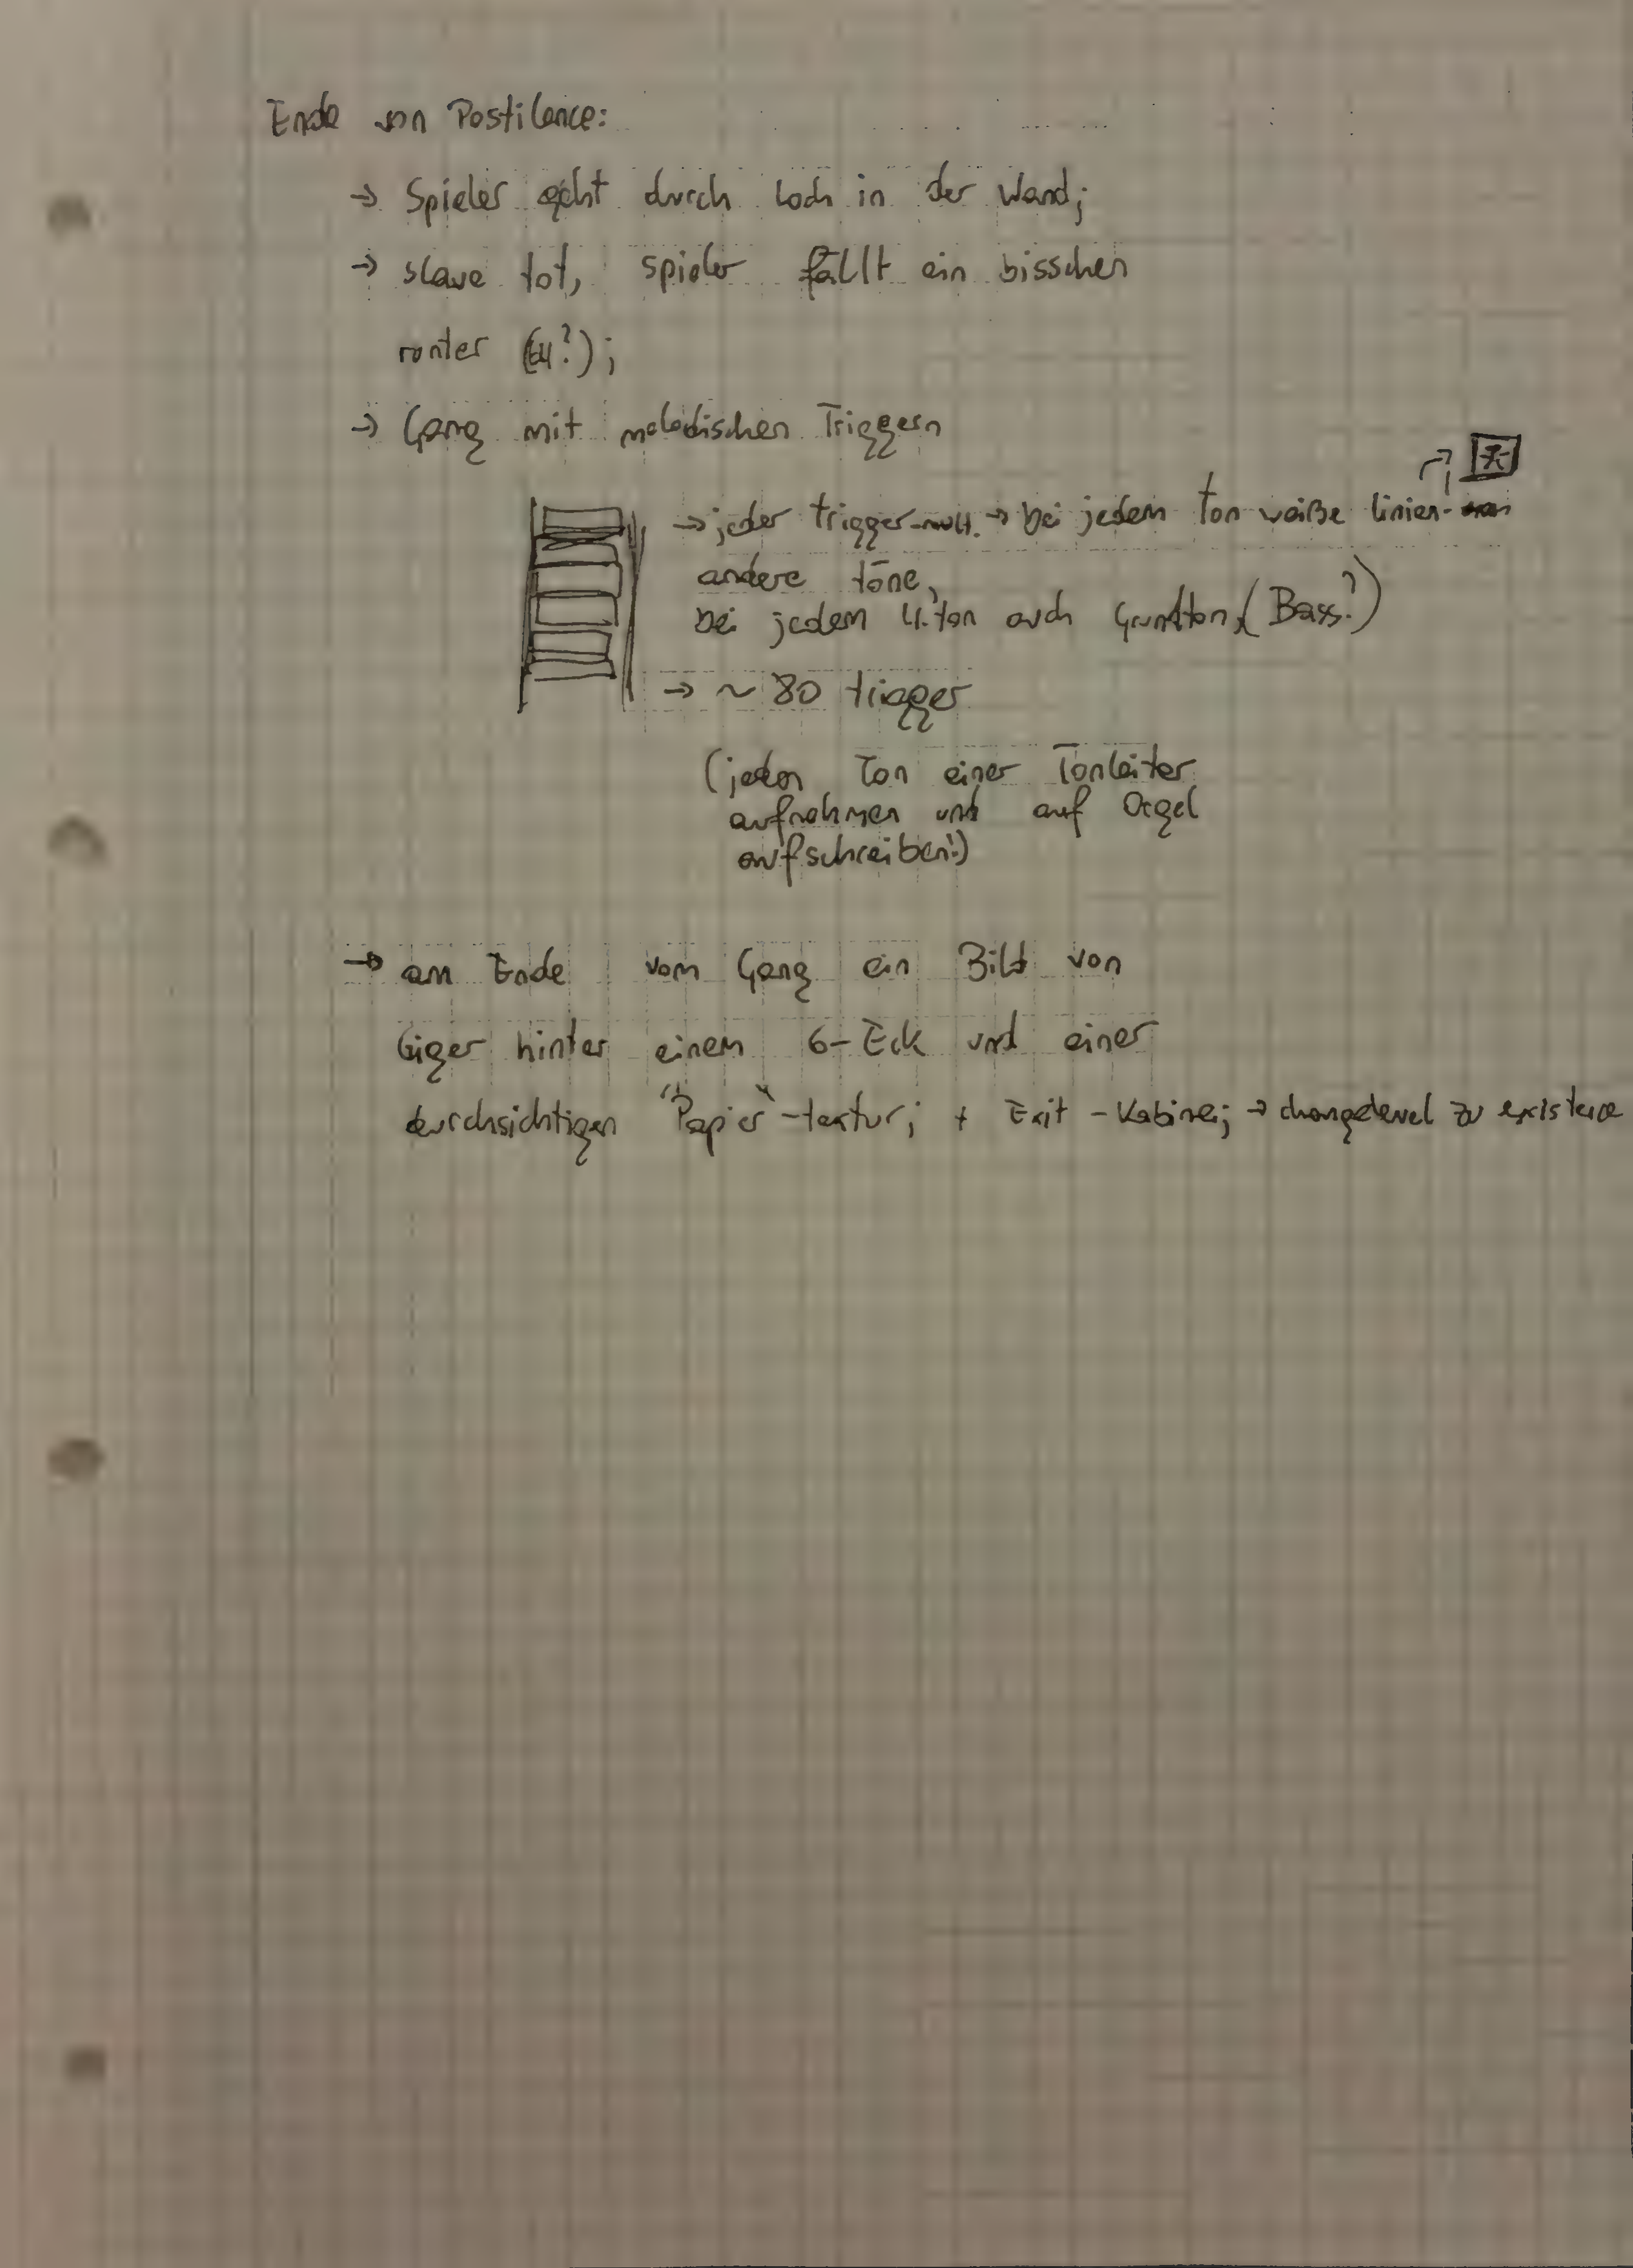 Ende von Pestilence:
→ Spieler geht durch Loch in der Wand;
→ slave tot, spieler fällt ein bisschen
runter
→ Gang mit melodischen Triggern
→ jeder trigger-mult. → bei jedem Ton weiße linien
andere töne,
bei jedem 4. ton auch Grundton (Bass?)
→ ~ 80 trigger
(jeden Ton einer Tonleiter
aufnehmen und auf Orgel
aufschreiben!)
→ am Ende vom Gang ein Bild von
Giger hinter einem 6-Eck und einer
durchsichtigen "Papier"-textur; + Exit-Kabine; → changelevel zu existence